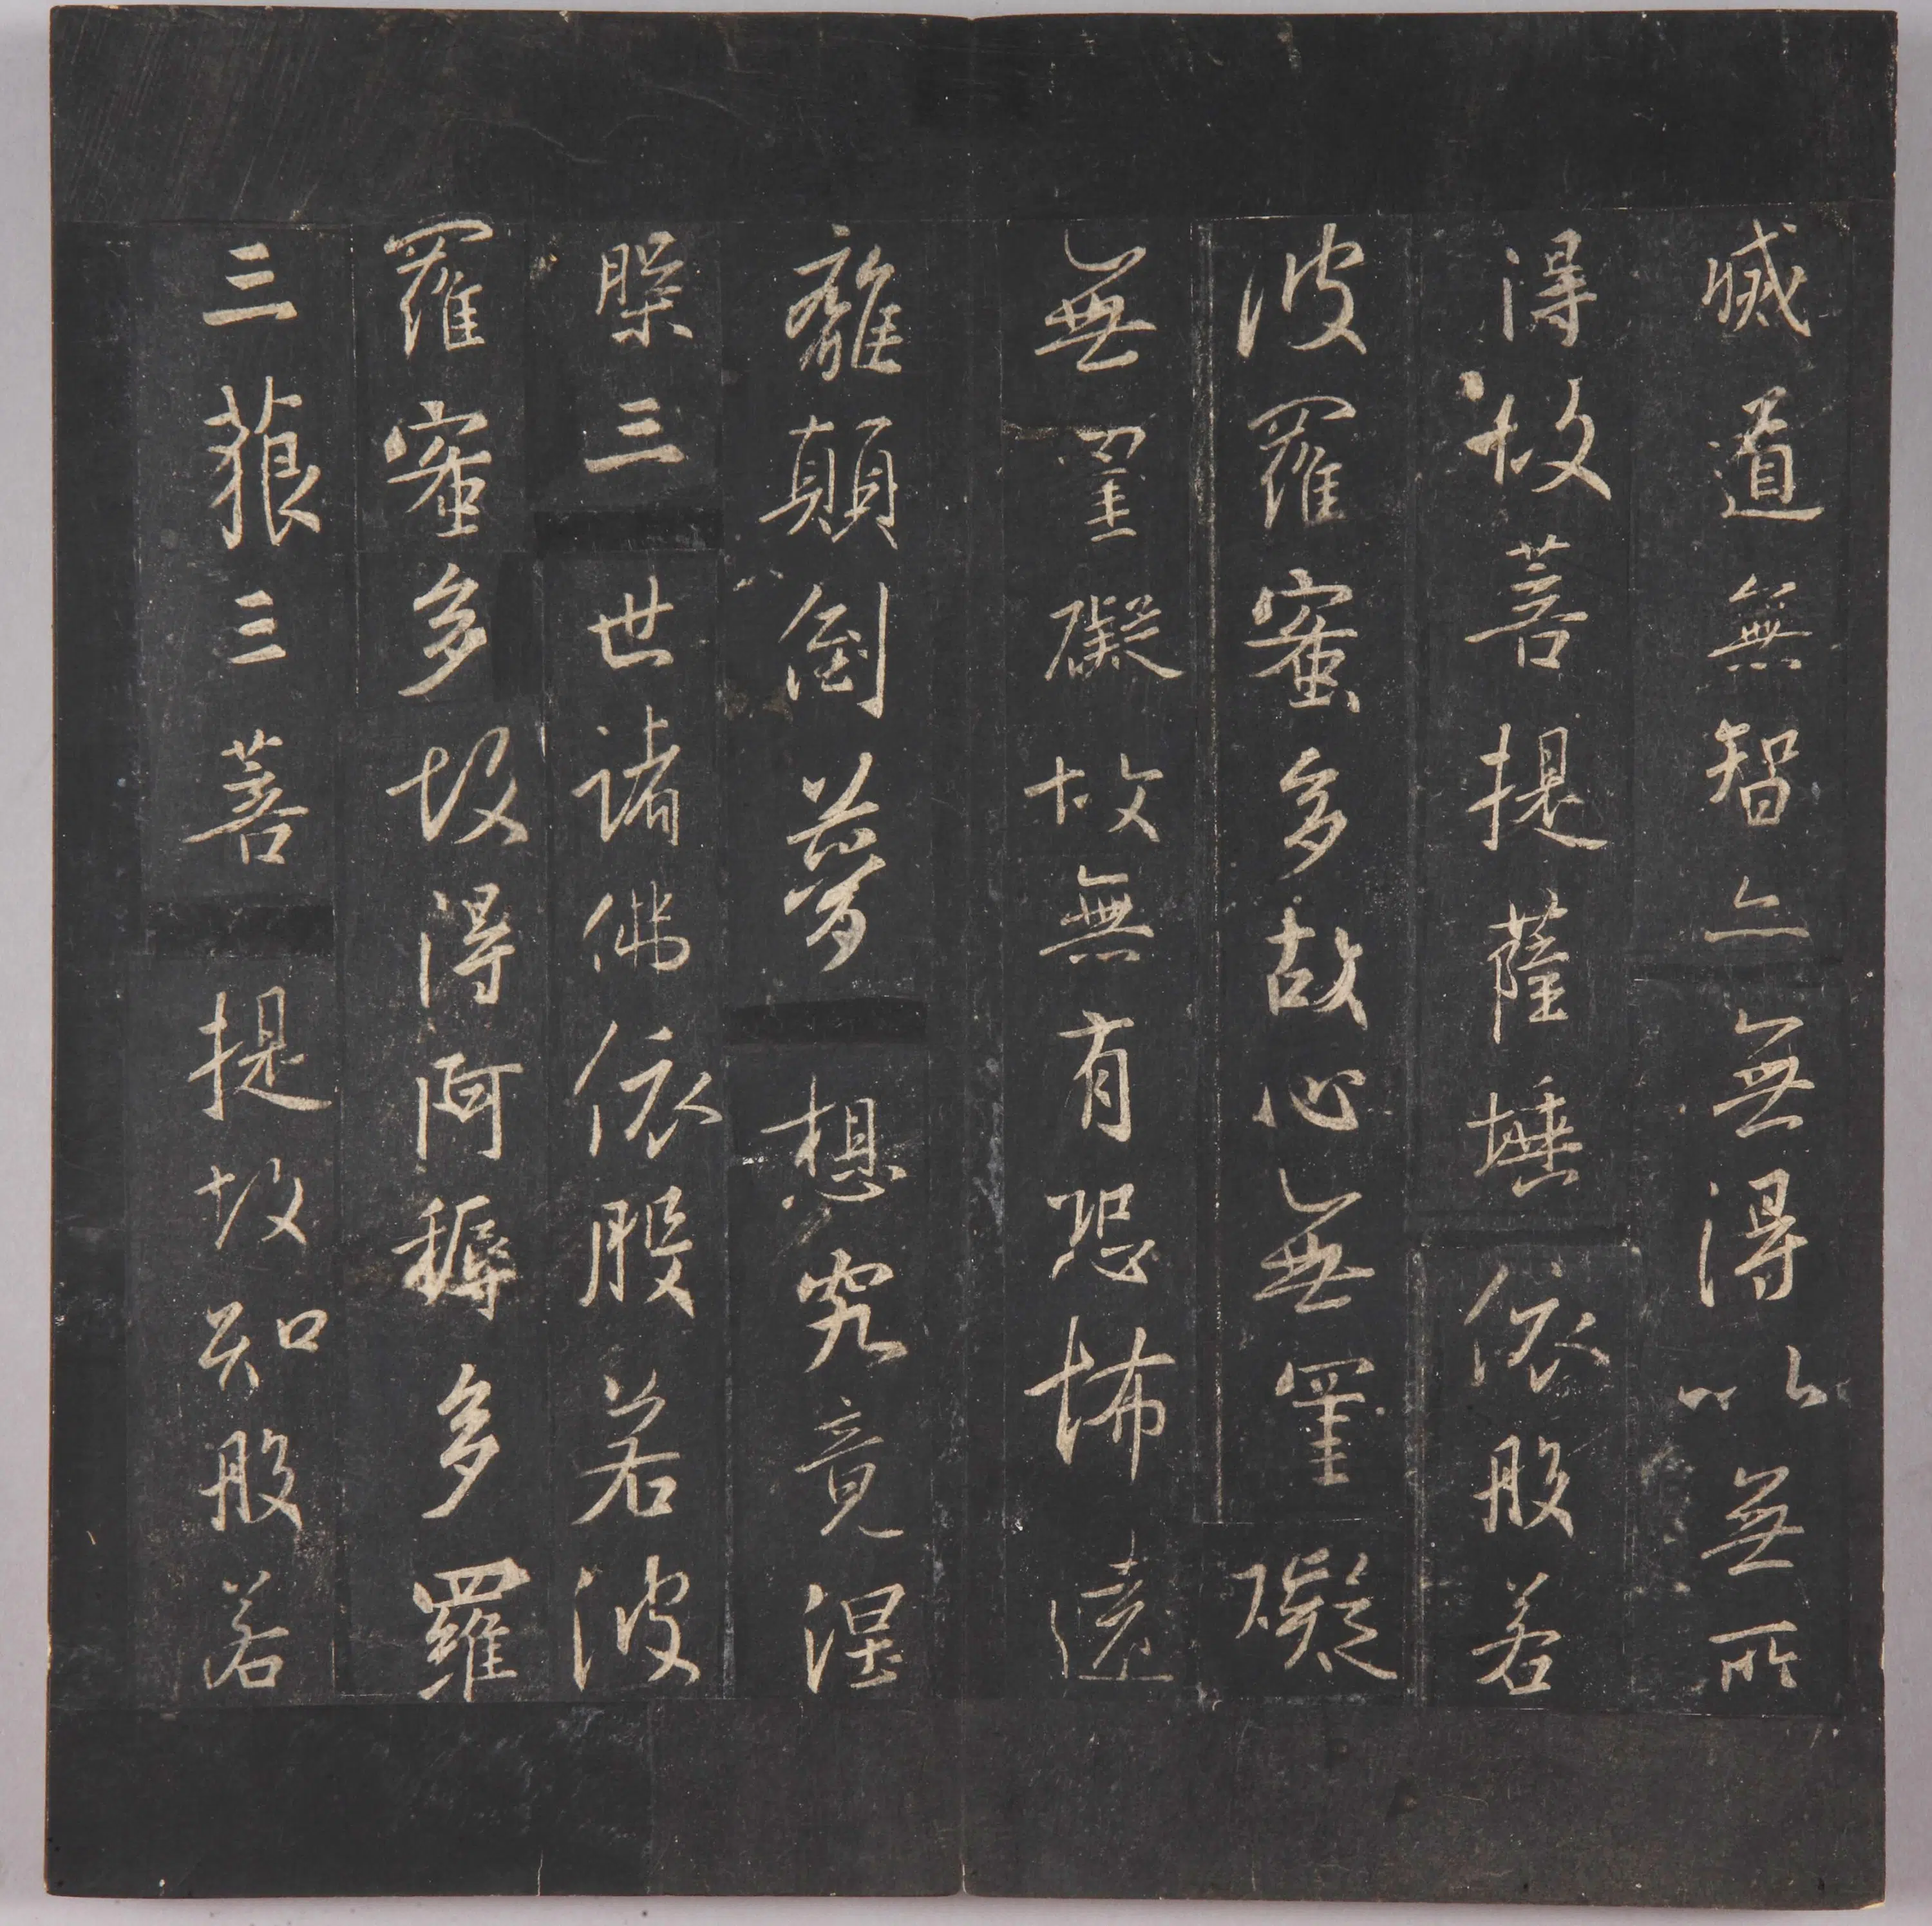 滅道無智亦無得以無所
得故菩提薩埵依般若
波羅蜜多故心無罣礙
無罣礙故無有恐怖遠
離顛倒夢想究竟涅
槃三世諸佛依般若波
羅蜜多故得阿耨多羅
三藐三菩提故知般若